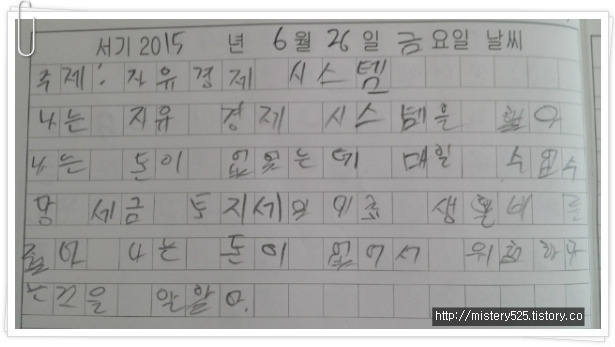 서기 2015 년 6월 26일 금요일 날씨
주제: 자유경제 시스템
나는 자유 경제 시스템을
나는 돈이 없었는데 매일
세금 토지세의 생활비 를
나는 돈이 없어서 위험하다
는것을
http://mistery525.tistory.co